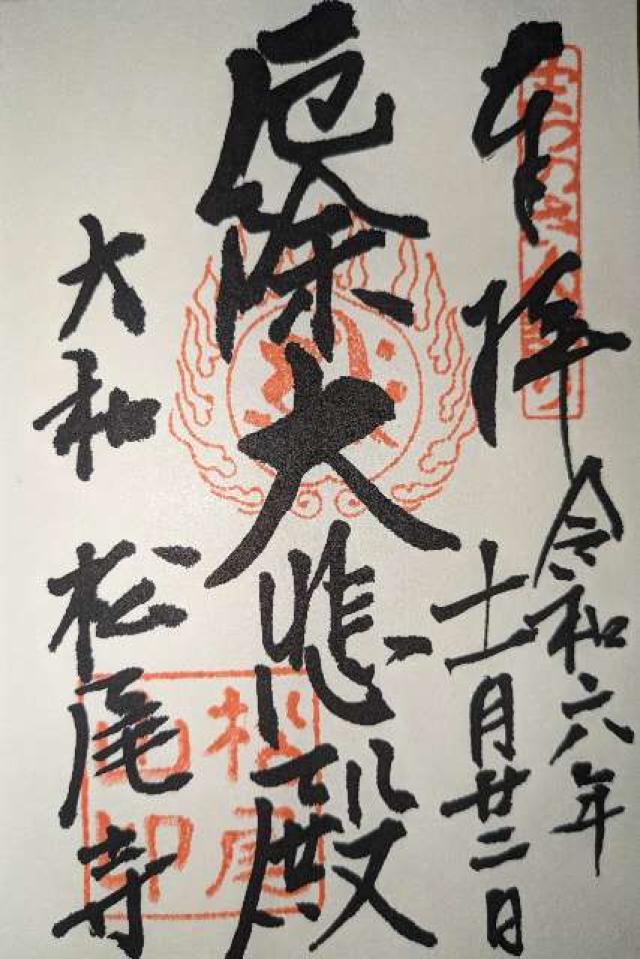 奉拝
令和六年
十一月廿二日
厄除大悲殿
大和 松尾寺
松尾
山印